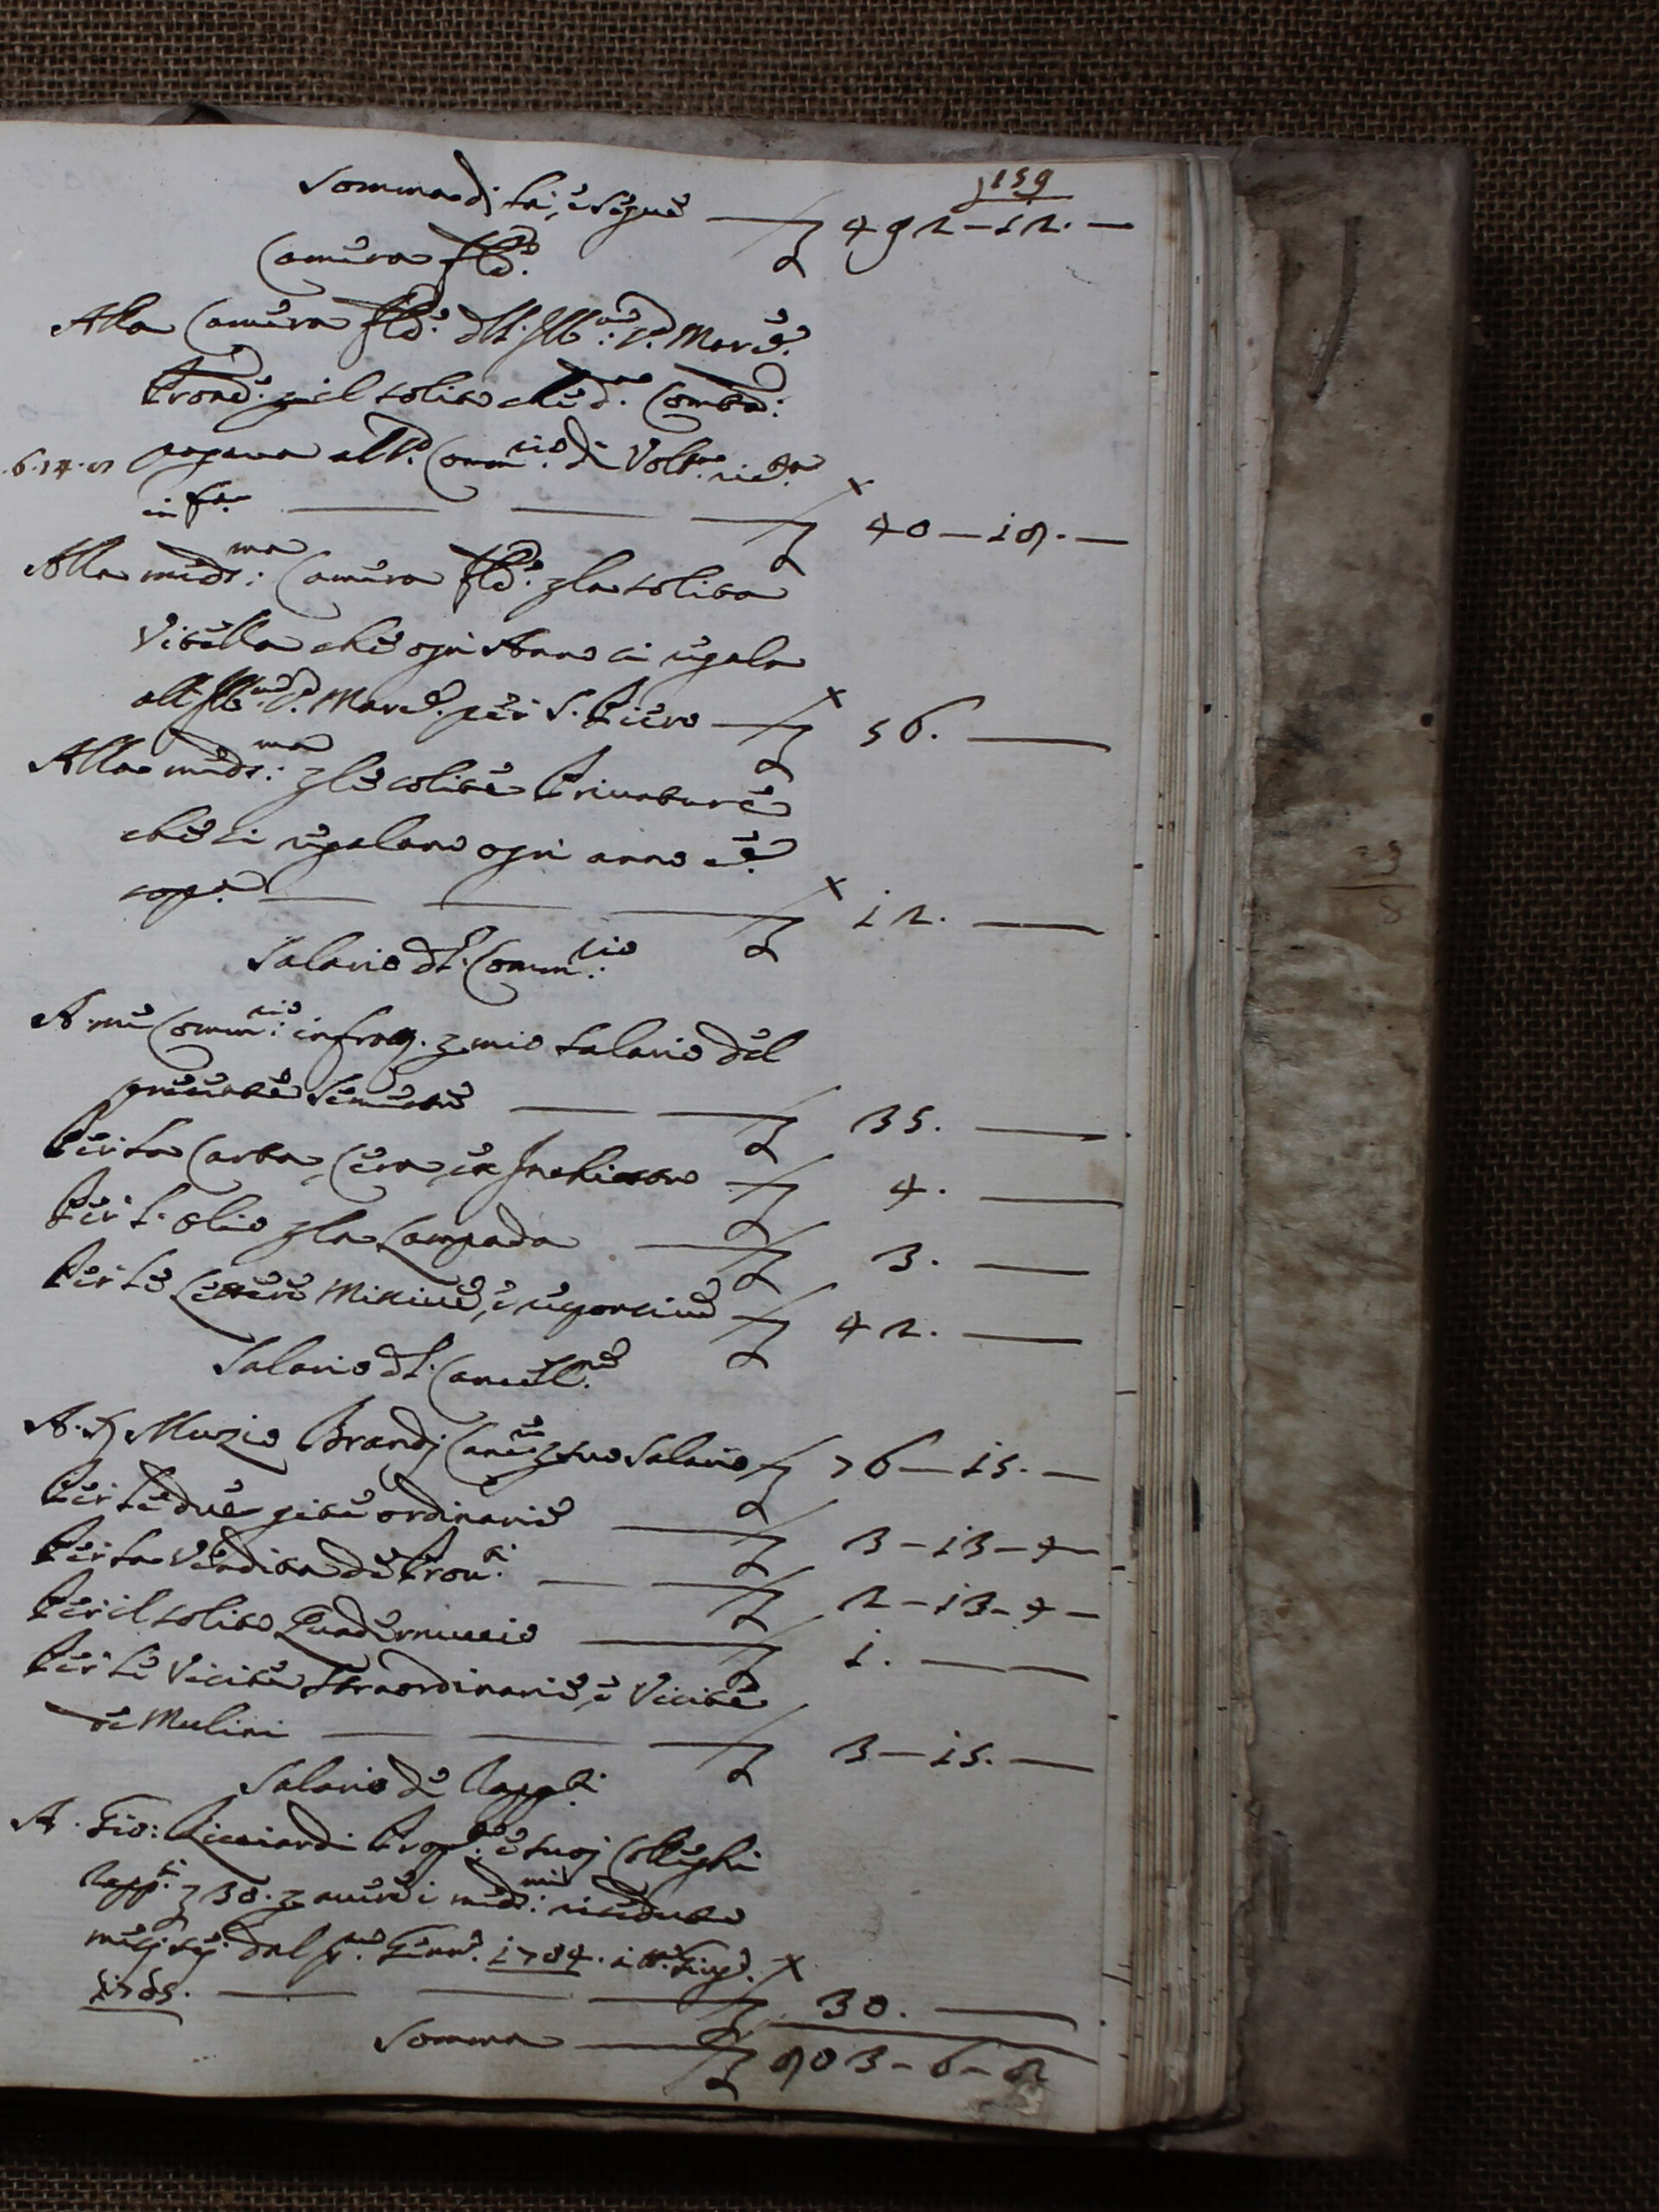 159
Somma di là, e segue — £ 492–12.—
Camera
Alla Camera dell' Ill.mo S. March.
Pron.e p il solito che d.a Comtà:
6.14.8 pagava all S. Comm.rio di
in f.a — — — £ 40–18.—
Alla med.ma: Camera p la solita
Vitella che ogni Anno si regala
all Ill.mo S. March. per S. Piero — £ 56. —
Alla med.ma: p le solite
che si regalano ogni anno
sop.a — — — £ 12. —
Salario dl. Comm.rio
A me Comm.rio: infra p mio salario del
presente Semestre — — £ 35. —
Per la Carta, Cera, et Inchiostro — £ 4. —
Per l. olio p la Lampada — £ 3. —
Per le Lettere Missive, e responsive — £ 42. —
Salario dl. Cancell.re
A. S. Muzio Brandj Canc.re p suo Salario £ 76–15.—
Per le due gite ordinarie — £ 3–13–4—
Per la Vendita de Prov.ti — — £ 2–13–4—
Per il solito Quadernuccio — £ 1. — —
Per le Vicite straordinarie, e Vicite
de Mulini — — — £ 3–15.—
Salario de Rapp.ti
A. Gio: Ricciardi e suoj Colleghi
Rapp.ti £ 30. p avere i med.mi: riseduto
mesi sej. dal p.mo Genn.o 1784. Giug.o
1785. — — — £ 30. —
Somma — £ 803–6–8